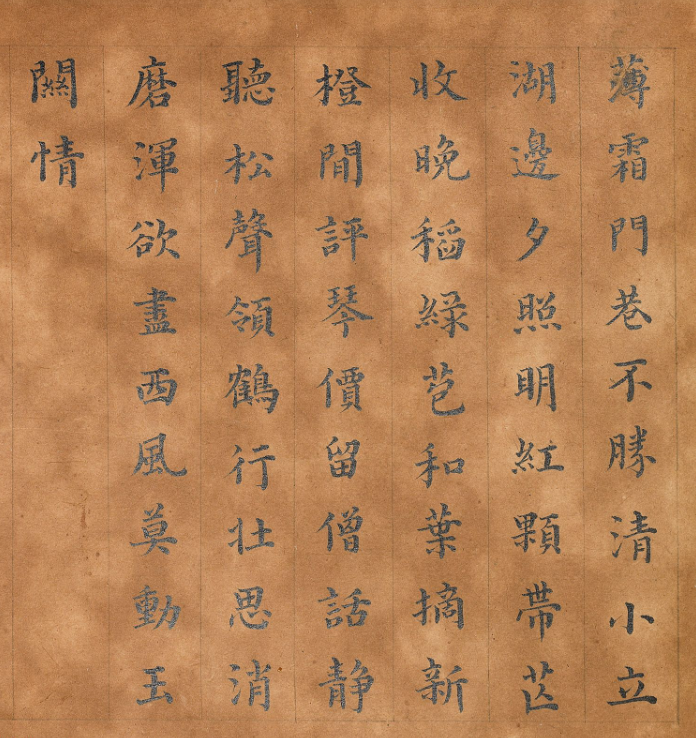 薄霜門巷不勝清小立
湖邊夕照明紅顆帶芒
收晚稻緑苞和葉摘新
橙間評琴價留僧話静
聽松聲領鶴行壮思消
磨渾欲盡西風莫動玉
闗情